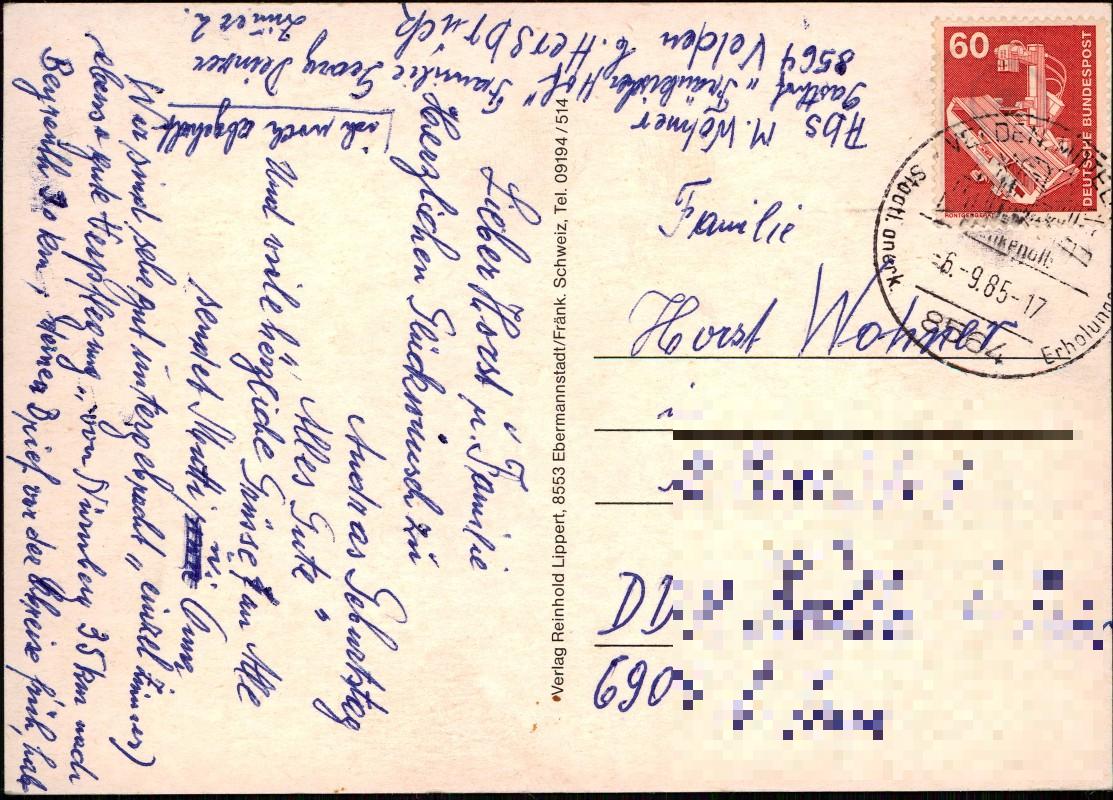 Lieber Horst u. Familie
Herzlichen Glückwunsch zu
Andreas Gebutstag
Alles Gute "
Und viele herzliche Grüsse an Alle
sendet Mutti
u. Anna
Wir sind sehr gut untergebracht, (einzel Zimmer)
ebenso gute Verpflegung, von Nürnberg 35 km nach
Bayreuth 30 km, deinen Brief vor der Abreise früh, hab
ich noch abgeholt
Familie
Georg Deinzer
Zimer 2.
Abs M. Wöhner
Gasthof "Fränkischer Hof"
8564 Velden b. Hersbruck
Verlag Reinhold Lippert, 8553 Ebermannstadt/Fränk. Schweiz, Tel. 09194/514
60
DEUTSCHE BUNDESPOST
Staatl. anerk.
-6.-9.85-17
8564
Erholung
Familie
Horst
DD
690